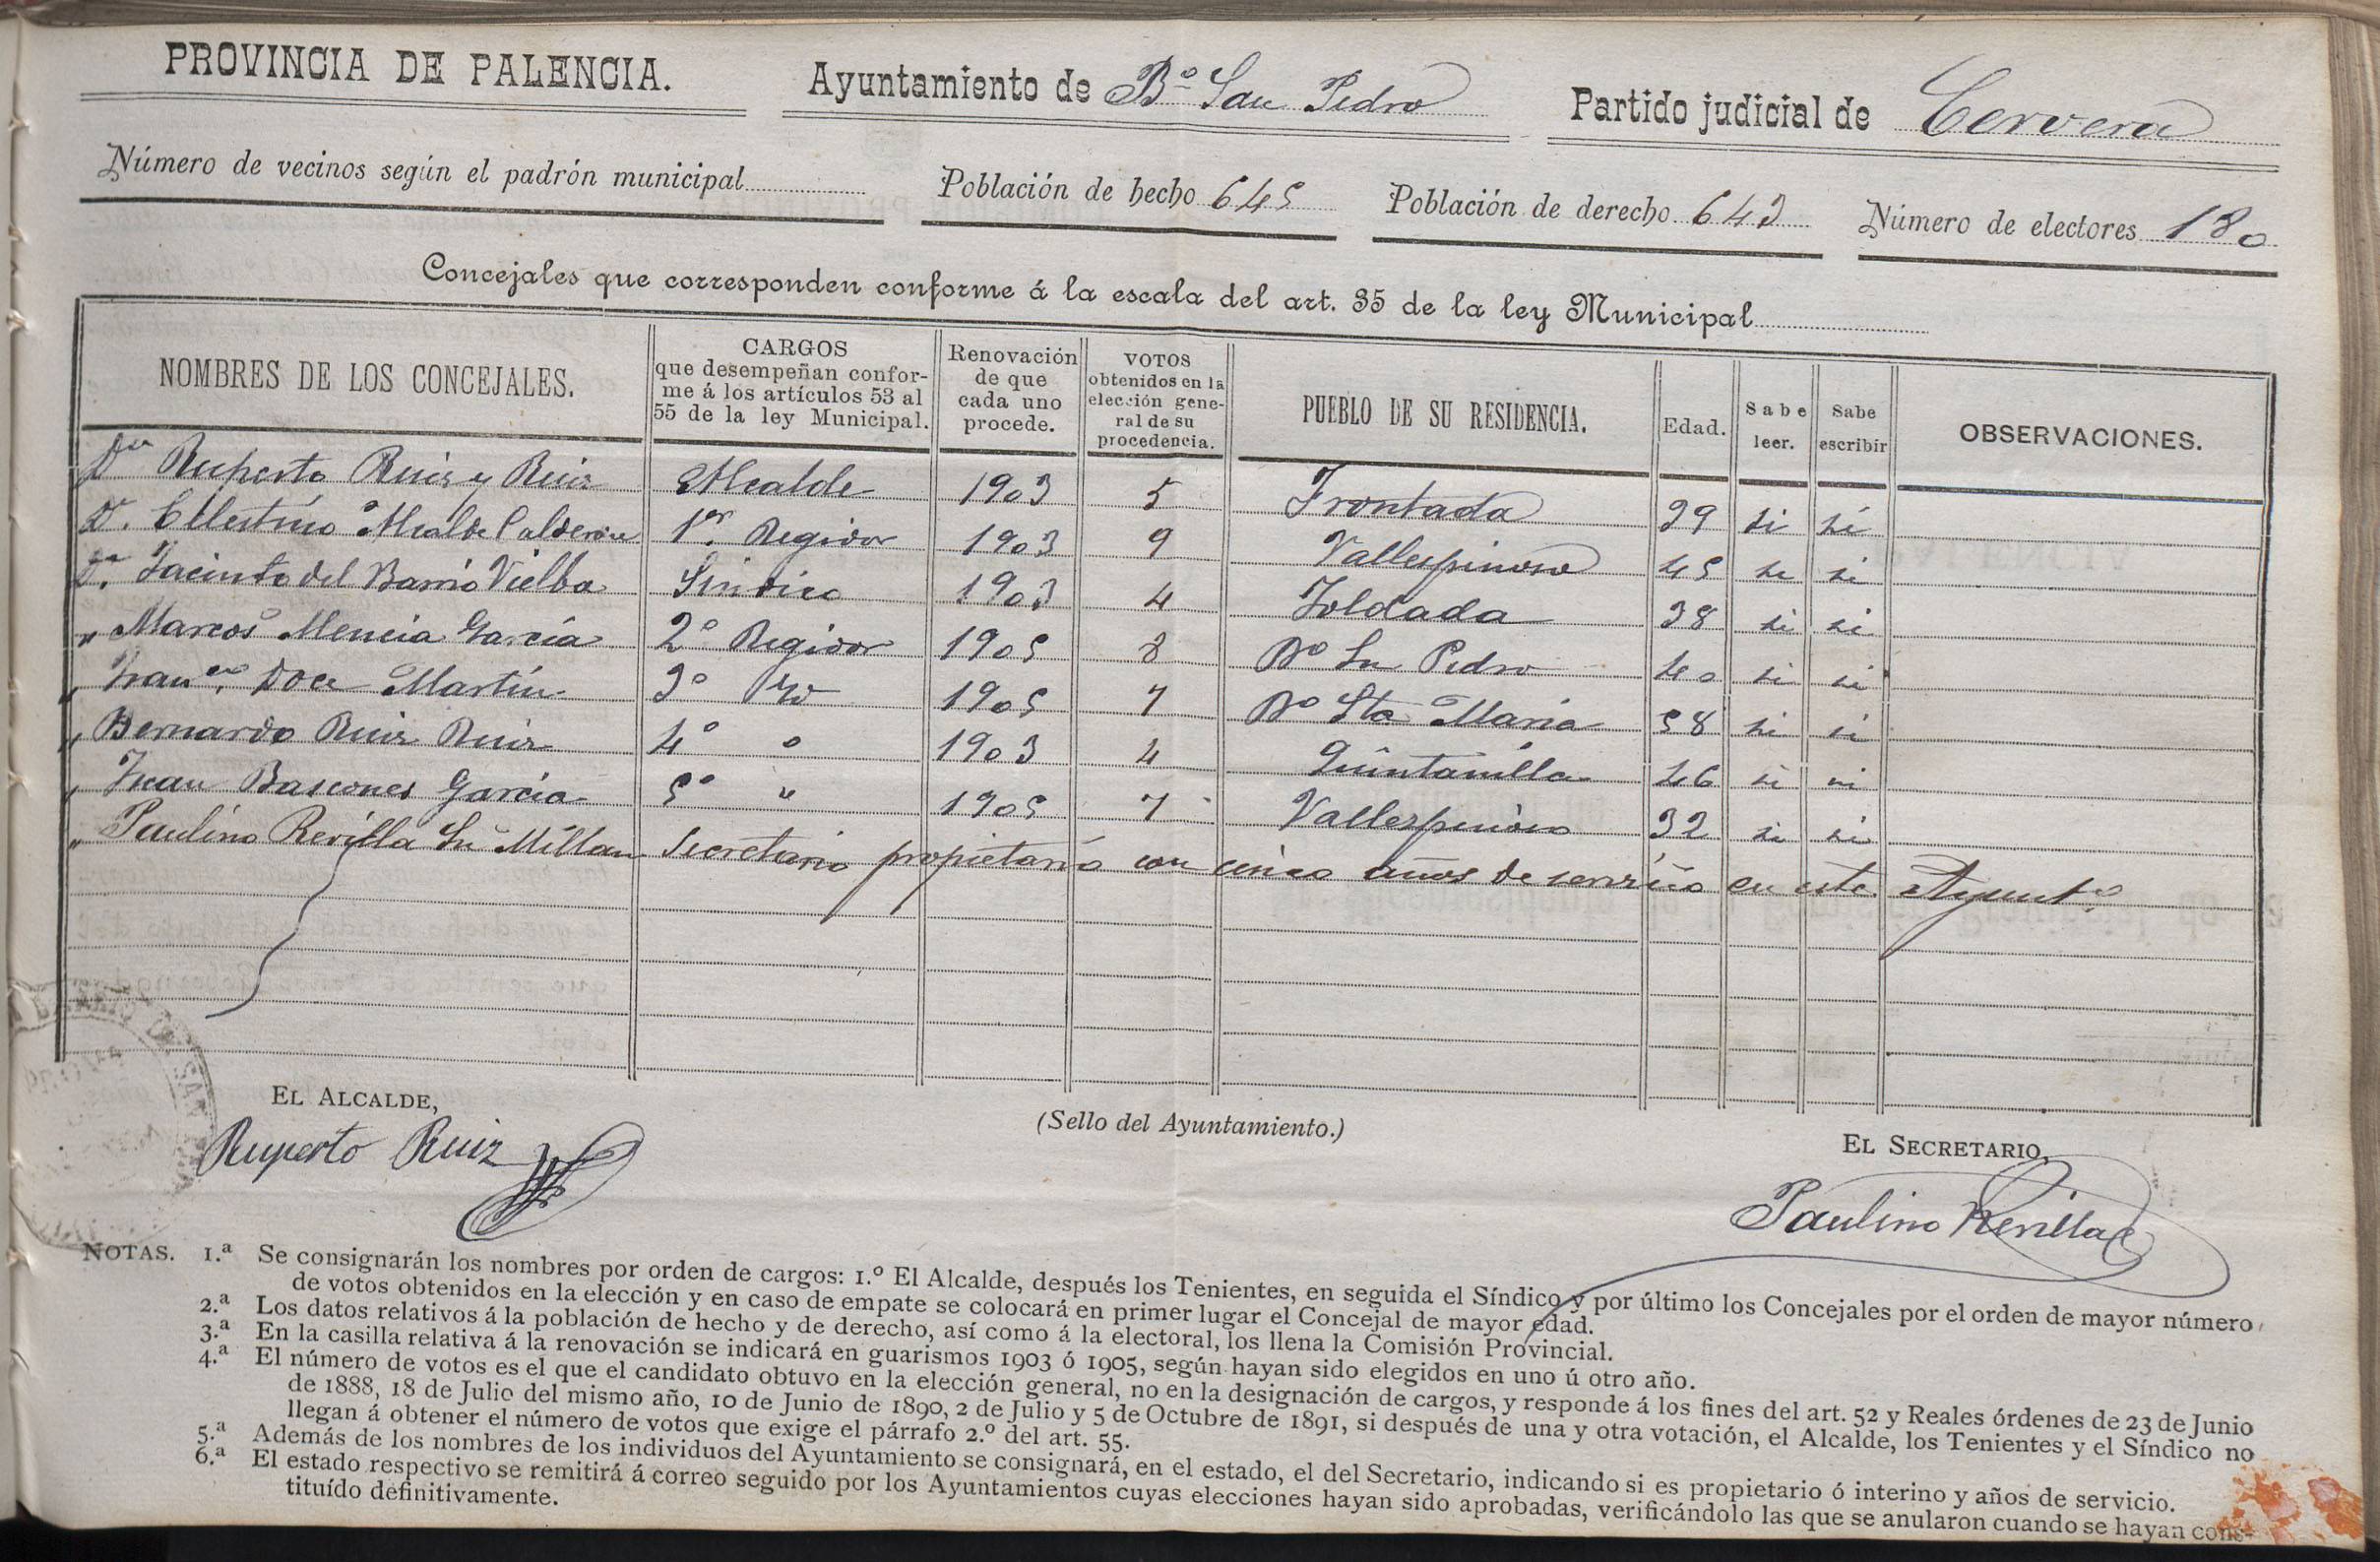 PROVINCIA DE PALENCIA. Ayuntamiento de Bº San Pedro Partido judicial de Cervera
Número de vecinos según el padrón municipal Población de hecho 645 Población de derecho 643 Número de electores 130
Concejales que corresponden conforme á la escala del art. 35 de la ley Municipal
NOMBRES DE LOS CONCEJALES.
CARGOS
que desempeñan confor-
me á los artículos 53 al
55 de la ley Municipal.
Renovación
de que
cada uno
procede.
VOTOS
obtenidos en la
elección gene-
ral de su
procedencia.
PUEBLO DE SU RESIDENCIA.
Edad.
Sabe
leer.
Sabe
escribir
OBSERVACIONES.
Dn Ruperto Ruiz y Ruiz Alcalde 1903 5 Frontada 39 si si
D. Celestino Alcalde Calderon 1er Regidor 1903 9 Vallespinoso 45 si si
Dn. Jacinto del Barrio Vielba Sindico 1903 4 Foldada 38 si si
" Marcos Mencia García 2º Regidor 1905 8 Bº Sn Pedro 40 si si
" Franco. Doce Martín 3º 1905 7 Bº Sta Maria 58 si si
" Bernardo Ruiz Ruiz 4º " 1903 4 Quintanilla 46 si si
" Juan Bascones García 5º " 1905 7 Vallespinoso 32 si si
" Paulino Revilla Sn Millan Secretario propietario con cinco años de servicio en este Ayuntº
EL ALCALDE,
Ruperto Ruiz
(Sello del Ayuntamiento.)
EL SECRETARIO,
Paulino Revilla
NOTAS. 1.ª Se consignarán los nombres por orden de cargos: 1.º El Alcalde, después los Tenientes, en seguida el Síndico y por último los Concejales por el orden de mayor número
de votos obtenidos en la elección y en caso de empate se colocará en primer lugar el Concejal de mayor edad.
2.ª Los datos relativos á la población de hecho y de derecho, así como á la electoral, los llena la Comisión Provincial.
3.ª En la casilla relativa á la renovación se indicará en guarismos 1903 ó 1905, según hayan sido elegidos en uno ú otro año.
4.ª El número de votos es el que el candidato obtuvo en la elección general, no en la designación de cargos, y responde á los fines del art. 52 y Reales órdenes de 23 de Junio
de 1888, 18 de Julio del mismo año, 10 de Junio de 1890, 2 de Julio y 5 de Octubre de 1891, si después de una y otra votación, el Alcalde, los Tenientes y el Síndico no
llegan á obtener el número de votos que exige el párrafo 2.º del art. 55.
5.ª Además de los nombres de los individuos del Ayuntamiento se consignará, en el estado, el del Secretario, indicando si es propietario ó interino y años de servicio.
6.ª El estado respectivo se remitirá á correo seguido por los Ayuntamientos cuyas elecciones hayan sido aprobadas, verificándolo las que se anularon cuando se hayan cons-
tituído definitivamente.